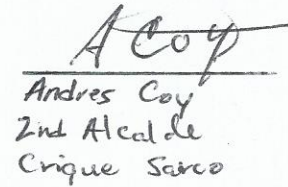 A Coy
Andres Coy
2nd Alcalde
Crique Sarco